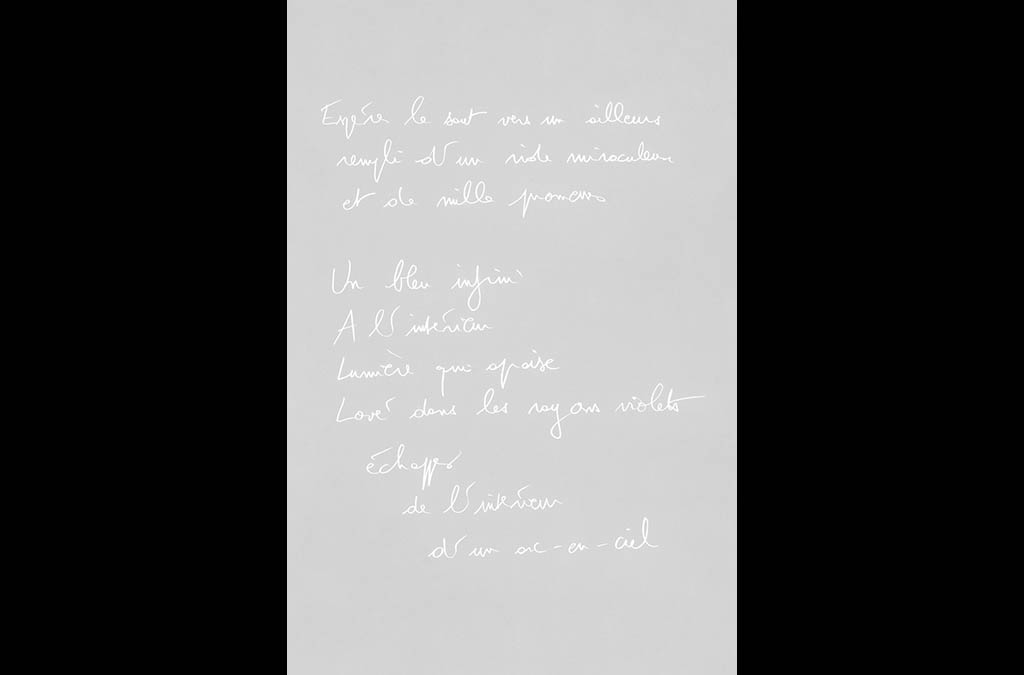 Espérer le saut vers un ailleurs
rempli d'un vide miraculeux
et de mille promesses
Un bleu infini
A l'intérieur
Lumière qui apaise
Lové dans les rayons violets
échappés
de l'intérieur
d'un arc-en-ciel